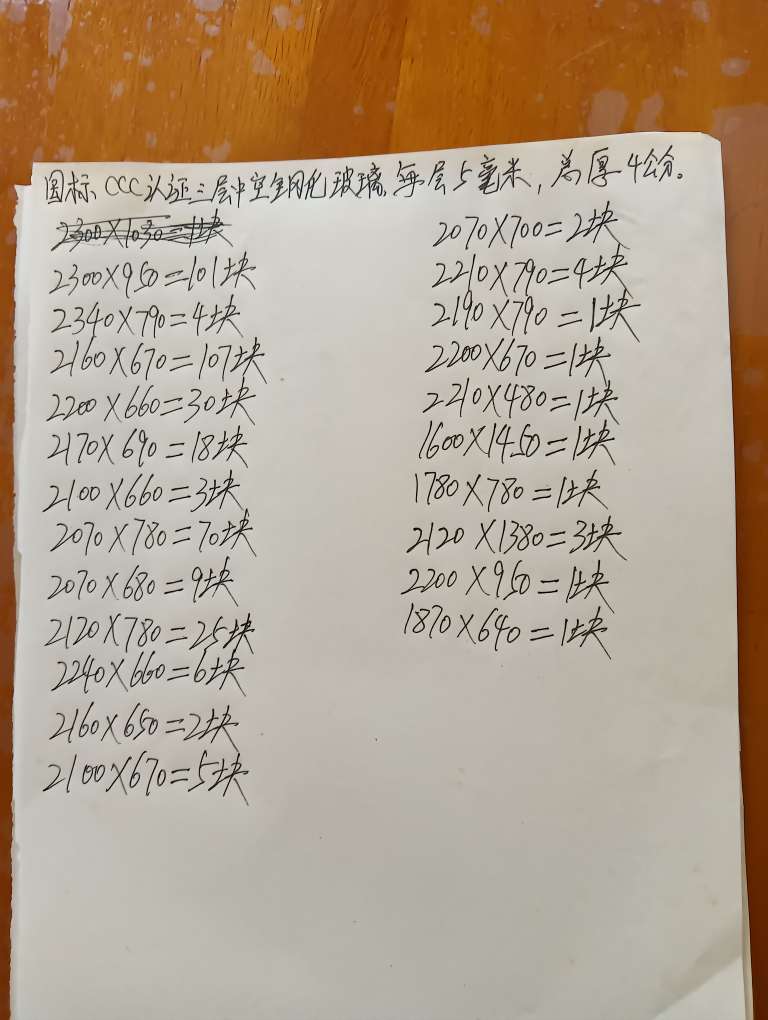 国标、CCC认证三层中空钢化玻璃,每层5毫米,总厚4公分。
2300×1030=1块
2300×950=101块
2340×790=4块
2160×670=107块
2200×660=30块
2170×690=18块
2100×660=3块
2070×780=70块
2070×680=9块
2120×780=25块
2240×660=6块
2160×650=2块
2100×670=5块
2070×700=2块
2210×790=4块
2190×790=1块
2200×670=1块
2210×480=1块
1600×1450=1块
1780×780=1块
2120×1380=3块
2200×950=1块
1870×640=1块